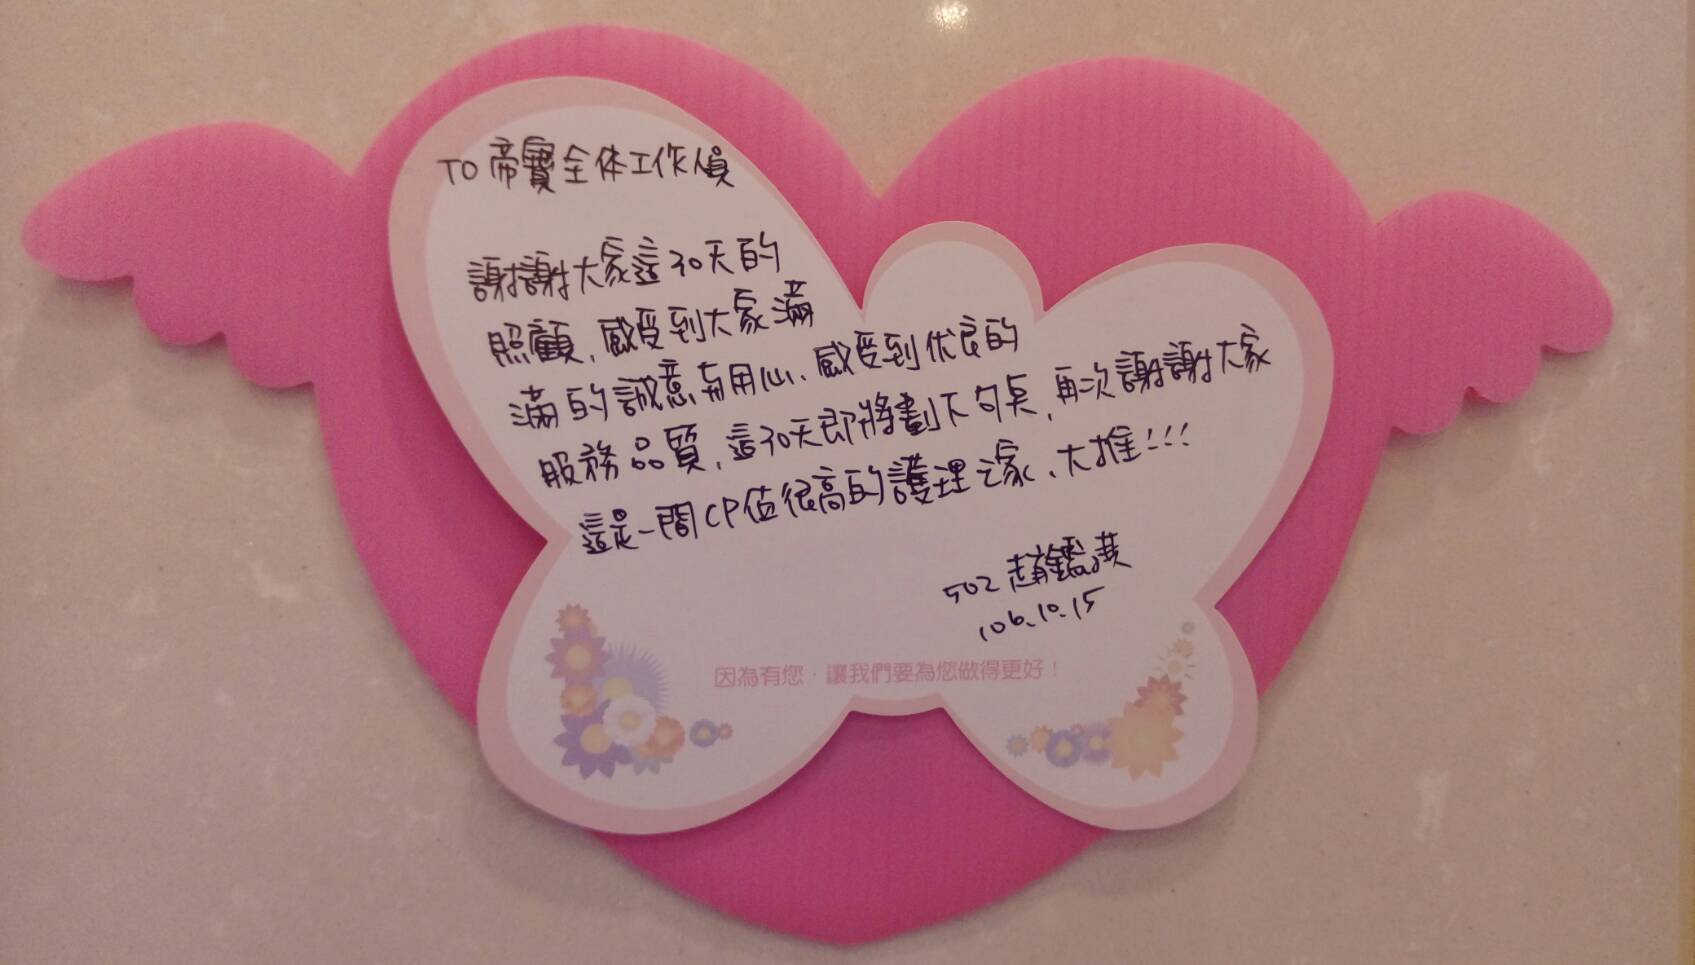 TO 帝寶全体工作人員
謝謝大家這30天的
照顧、感受到大家滿
滿的誠意與用心、感受到优良的
服務品質，這30天即將劃下句点，再次謝謝大家
這是一間CP值很高的護理之家、大推!!!
502 趙鑑
106.10.15
因為有您，讓我們要為您做得更好！